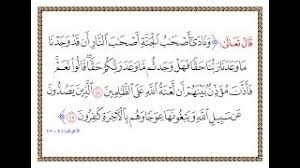 قَالَ تَعَالَىٰ: ﴿وَنَادَىٰٓ أَصۡحَٰبُ ٱلۡجَنَّةِ أَصۡحَٰبَ ٱلنَّارِ أَن قَدۡ وَجَدۡنَا
مَا وَعَدَنَا رَبُّنَا حَقّٗا فَهَلۡ وَجَدتُّم مَّا وَعَدَ رَبُّكُمۡ حَقّٗاۖ قَالُواْ نَعَمۡۚ
فَأَذَّنَ مُؤَذِّنُۢ بَيۡنَهُمۡ أَن لَّعۡنَةُ ٱللَّهِ عَلَى ٱلظَّٰلِمِينَ ٤٤ ٱلَّذِينَ يَصُدُّونَ
عَن سَبِيلِ ٱللَّهِ وَيَبۡغُونَهَا عِوَجٗا وَهُم بِٱلۡأٓخِرَةِ كَٰفِرُونَ ٤٥﴾